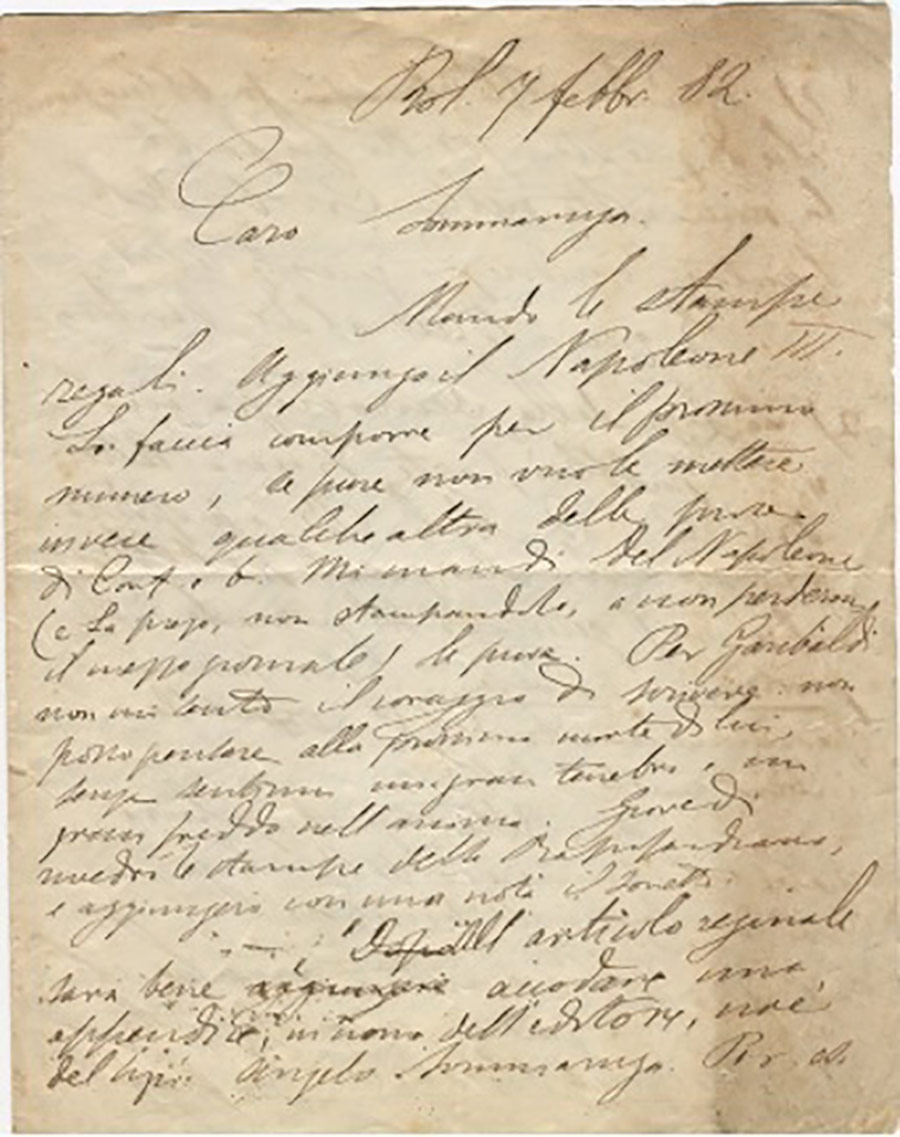 Bol. 7 febbr. 82.
Caro Sommaruga.
Mando le stampe
regali. Aggiunga il Napoleone III.
Lo faccia comporre per il prossimo
numero, se pure non vuole mettere
invece qualche altra delle prose
di Conf. e b. Mi mandi del Napoleone
(e La prego, non stampandolo, a non perdermi
il mezzo giornale) le prove. Per Garibaldi
non mi sento il coraggio di scrivere: non
posso pensare alla prossima morte di lui,
senza sentirmi un gran tenebre, e un
gran freddo nell'anima. Giovedì
rivedrò le stampe della
e aggiungerò con una nota il sonetto.
Dopo All'articolo reginale
sarà bene aggiungere accodare una
appendice, in nome dell'editore, cioè
del sigr. Angelo Sommaruga. Per es.